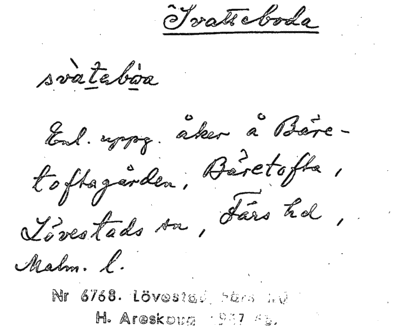 Svatteboda
svàtebòa
Enl. uppg. åker å Båre-
toftagården, Båretofta,
Lövestads sn, Färs hd,
Malm. l.
Nr 6768. Lövestad, Färs hd
H. Areskoug 1937